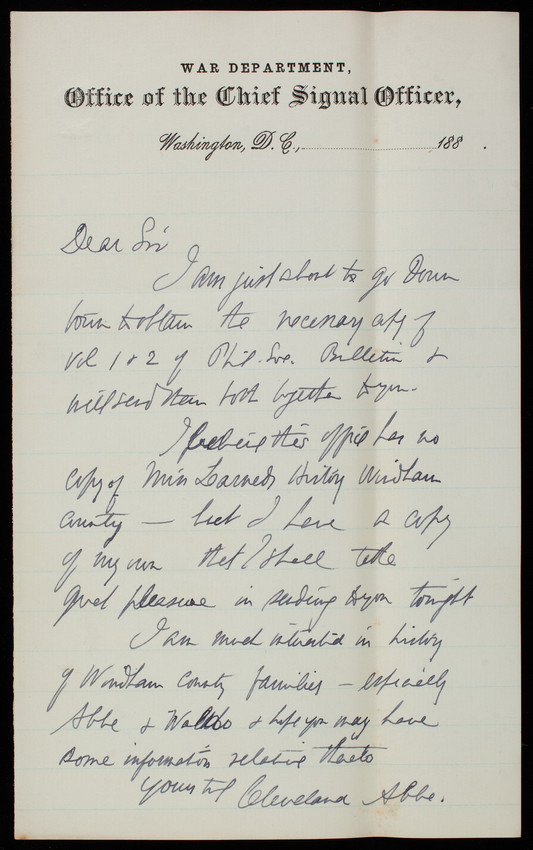 WAR DEPARTMENT,
Office of the Chief Signal Officer,
Washington, D. C., 188 .
Dear Sir
I am just about to go down
town to obtain the necessary copy of
Vol 1 & 2 of Phil. Soc. Bulletin &
will send them both together to you.
I believe this office has no
copy of Miss Larned's History Windham
County — but I have a copy
of my own that I shall take
great pleasure in sending to you tonight
I am much interested in history
of Windham County families — especially
Abbe & Waldo & hope you may have
some information relative thereto
Yours Cleveland Abbe.